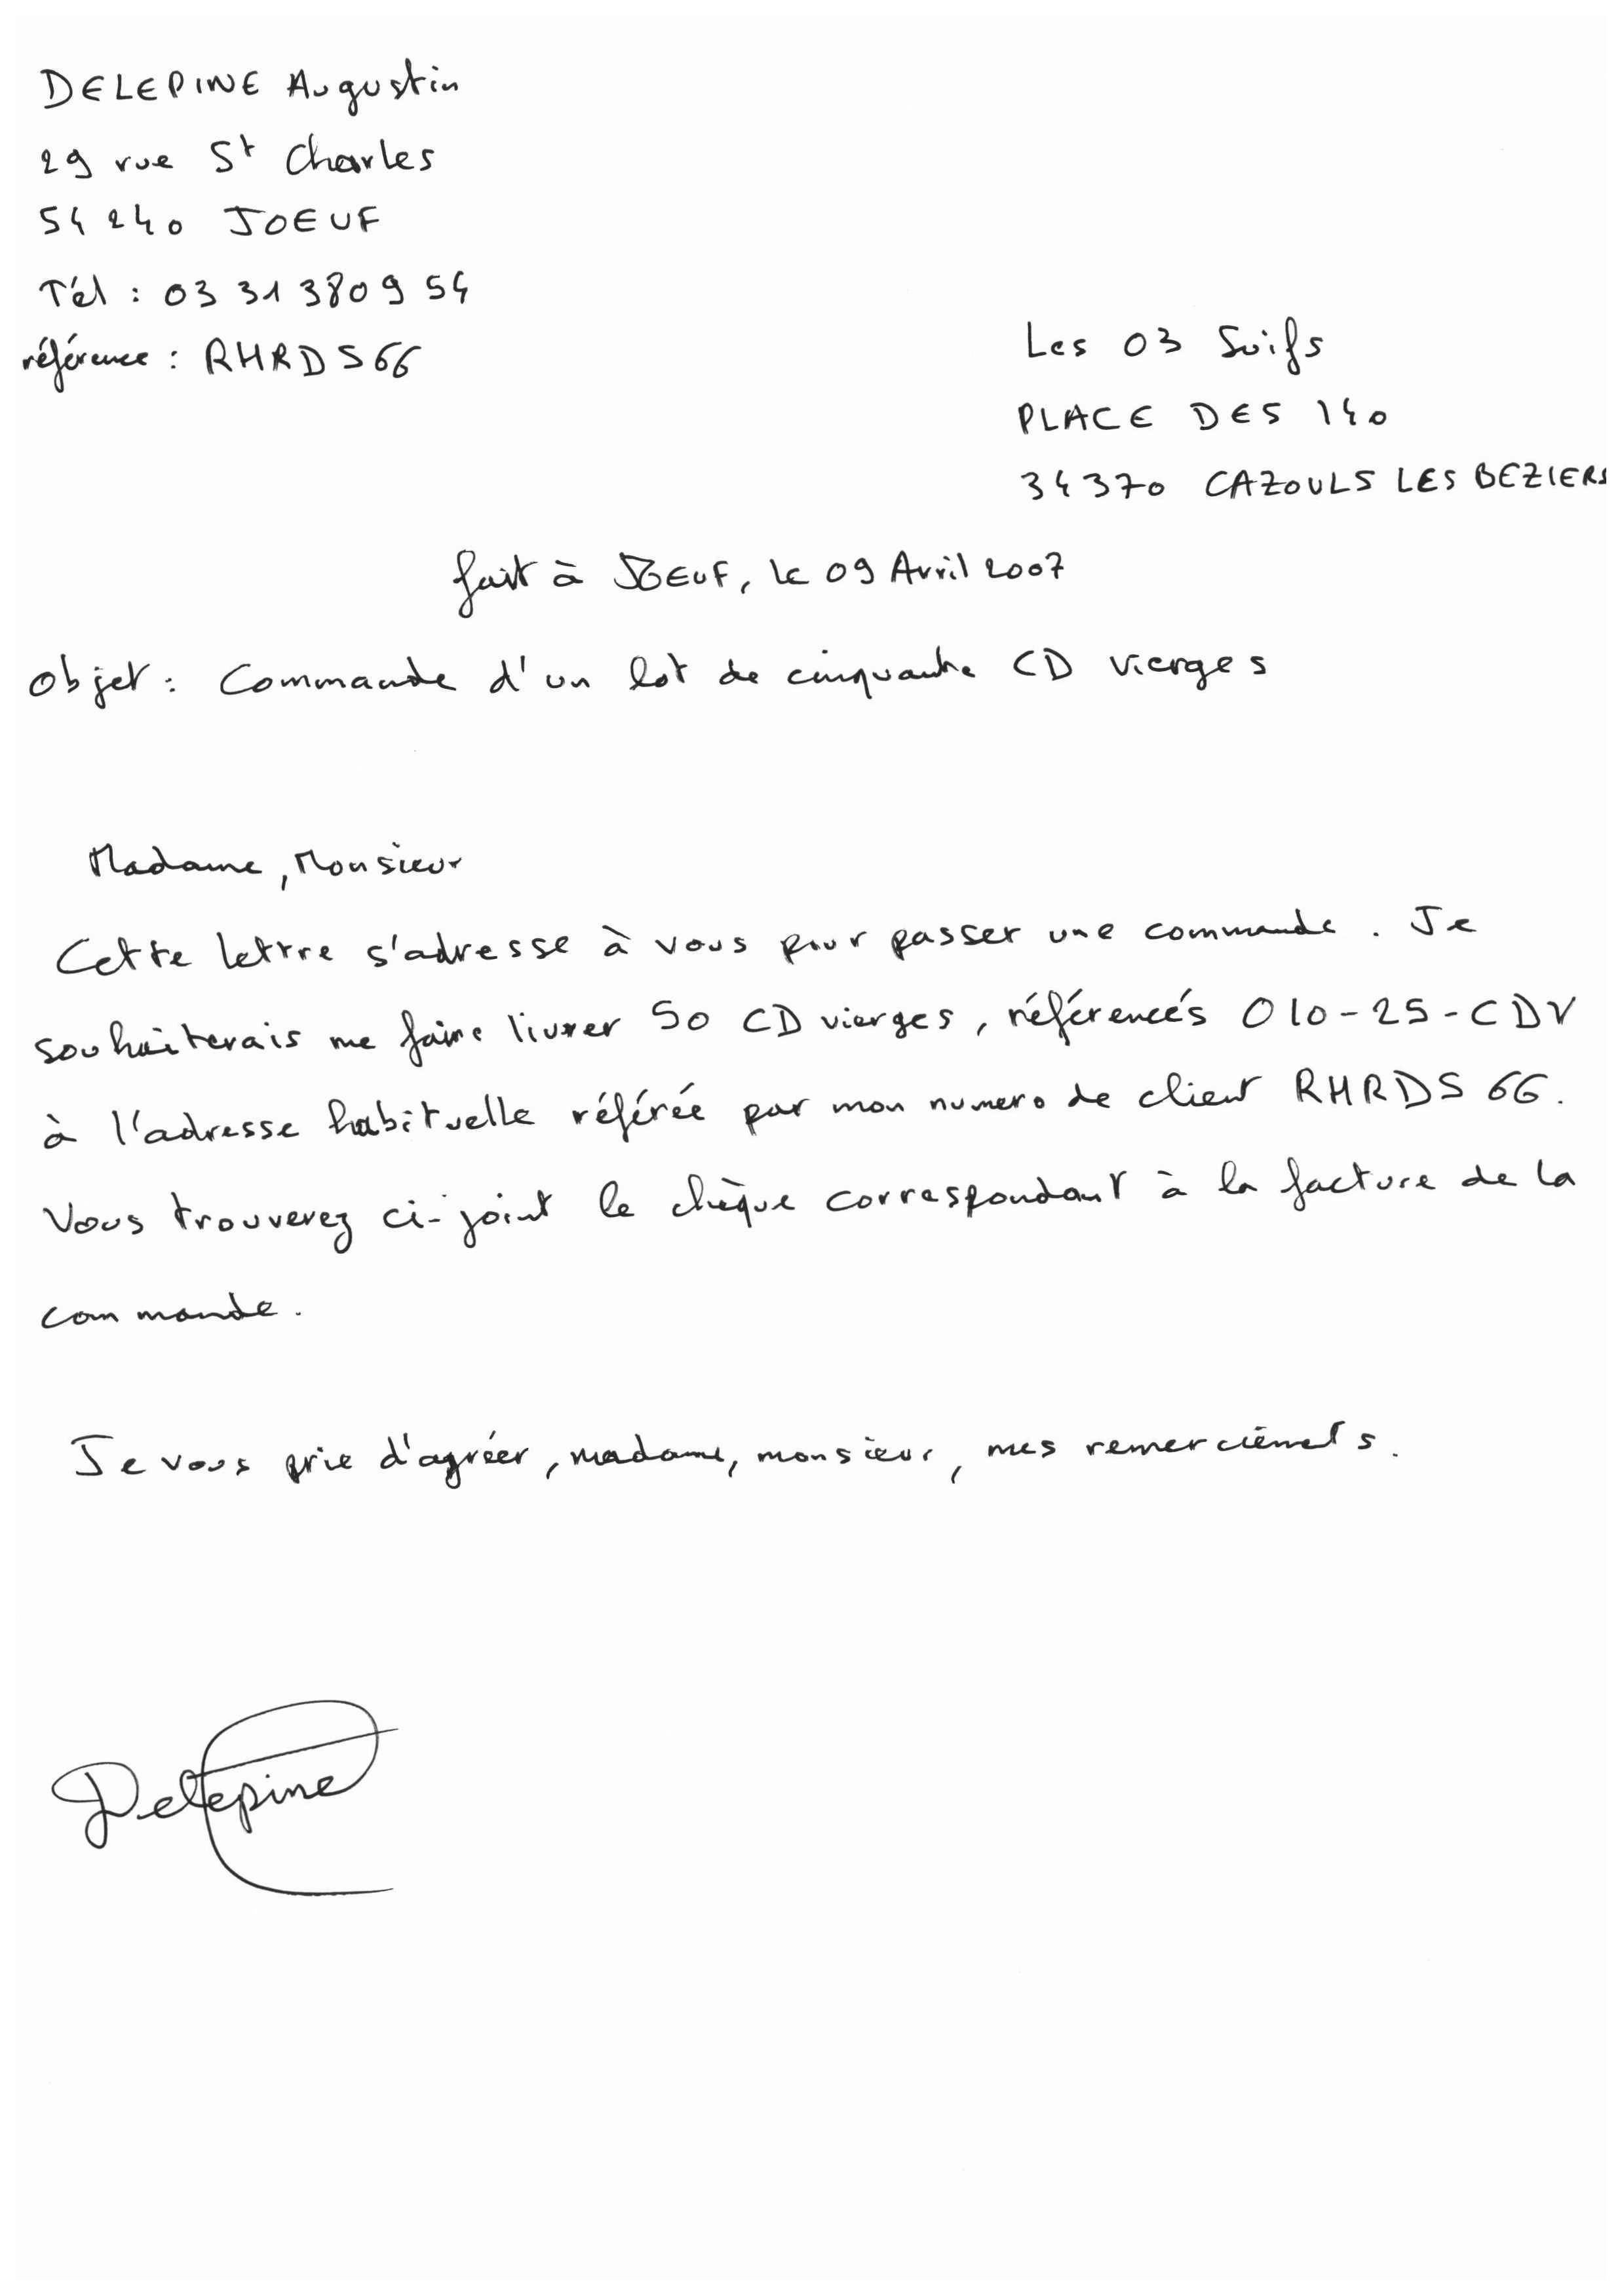 DELEPINE Augustin
29 rue St Charles
54240 JOEUF
Tél : 03 31 38 09 54
référence : RHRDS66
Les 03 Suifs
PLACE DES 140
34370 CAZOULS LES BEZIERS
fait à JOEUF, le 09 Avril 2007
Objet : Commande d'un lot de cinquante CD vierges
Madame, Monsieur
Cette lettre s'adresse à vous pour passer une commande. Je
souhaiterais me faire livrer 50 CD vierges, référencés 010-25-CDV
à l'adresse habituelle référée par mon numero de client RHRDS66.
Vous trouverez ci-joint le chèque correspondant à la facture de la
commande.
Je vous prie d'agréer, madame, monsieur, mes remerciements.
Delepine